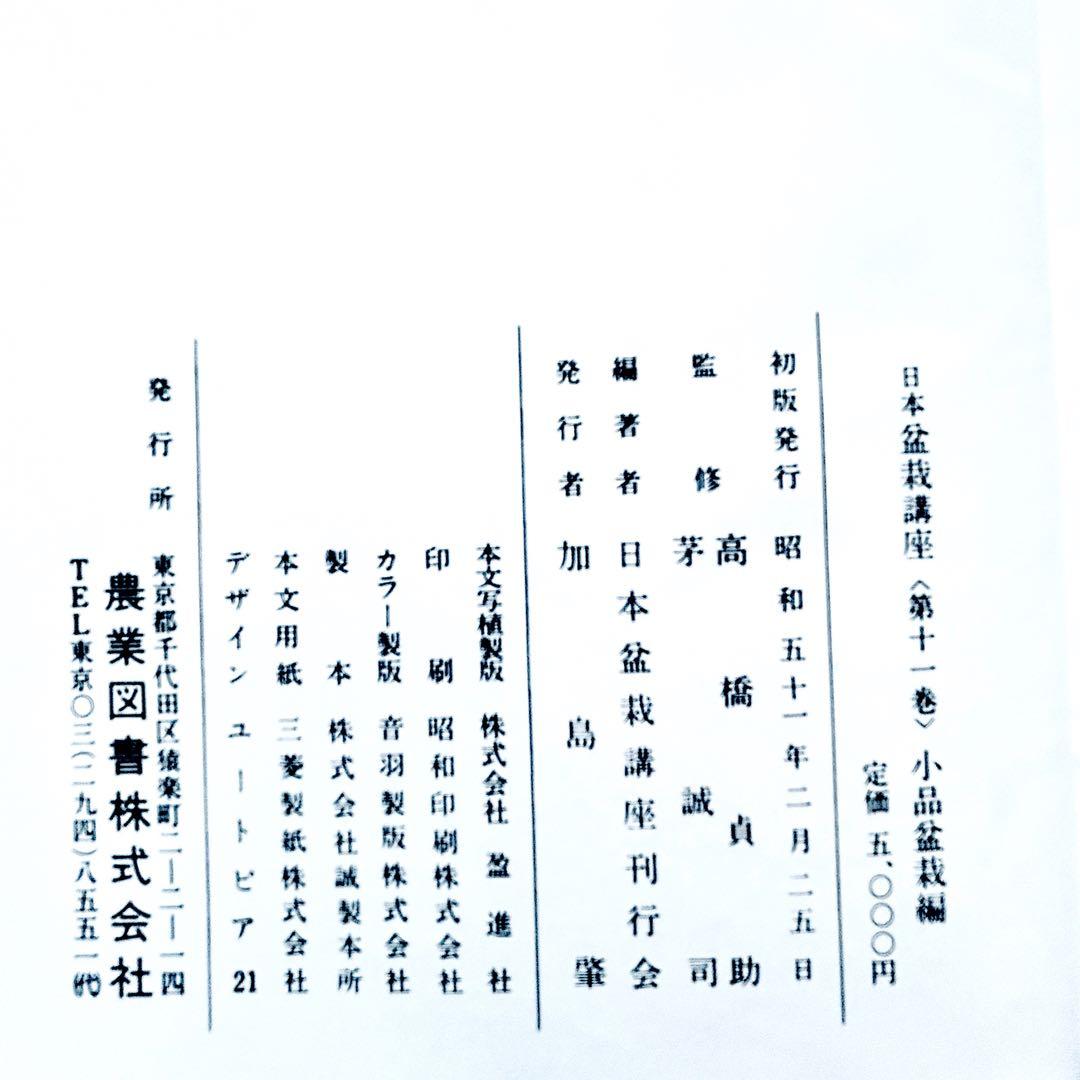 日本盆栽講座〈第十一巻〉小品盆栽編
定価 五、〇〇〇円
初版発行 昭和五十一年二月二五日
監修 高橋貞助
茅誠司
編著者 日本盆栽講座刊行会
発行者 加島肇
本文写植製版 株式会社 盈進社
印刷 昭和印刷株式会社
カラー製版 音羽製版株式会社
製本 株式会社誠製本所
本文用紙 三菱製紙株式会社
デザイン ユートピア21
発行所 東京都千代田区猿楽町二―二―一四
農業図書株式会社
TEL東京〇三(二九四)八五五一㈹